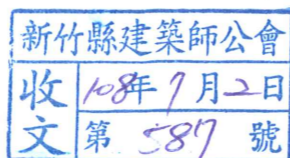 新竹縣建築師公會
收文
108年7月2日
第 587 號